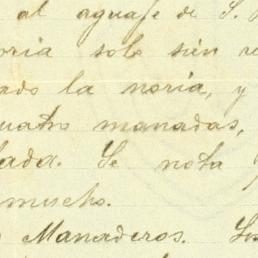 al aguaje de S.
oria solo sien
ado la noria, y
uatro manadas,
lada. Se nota
mucho.
Manaderos. Los